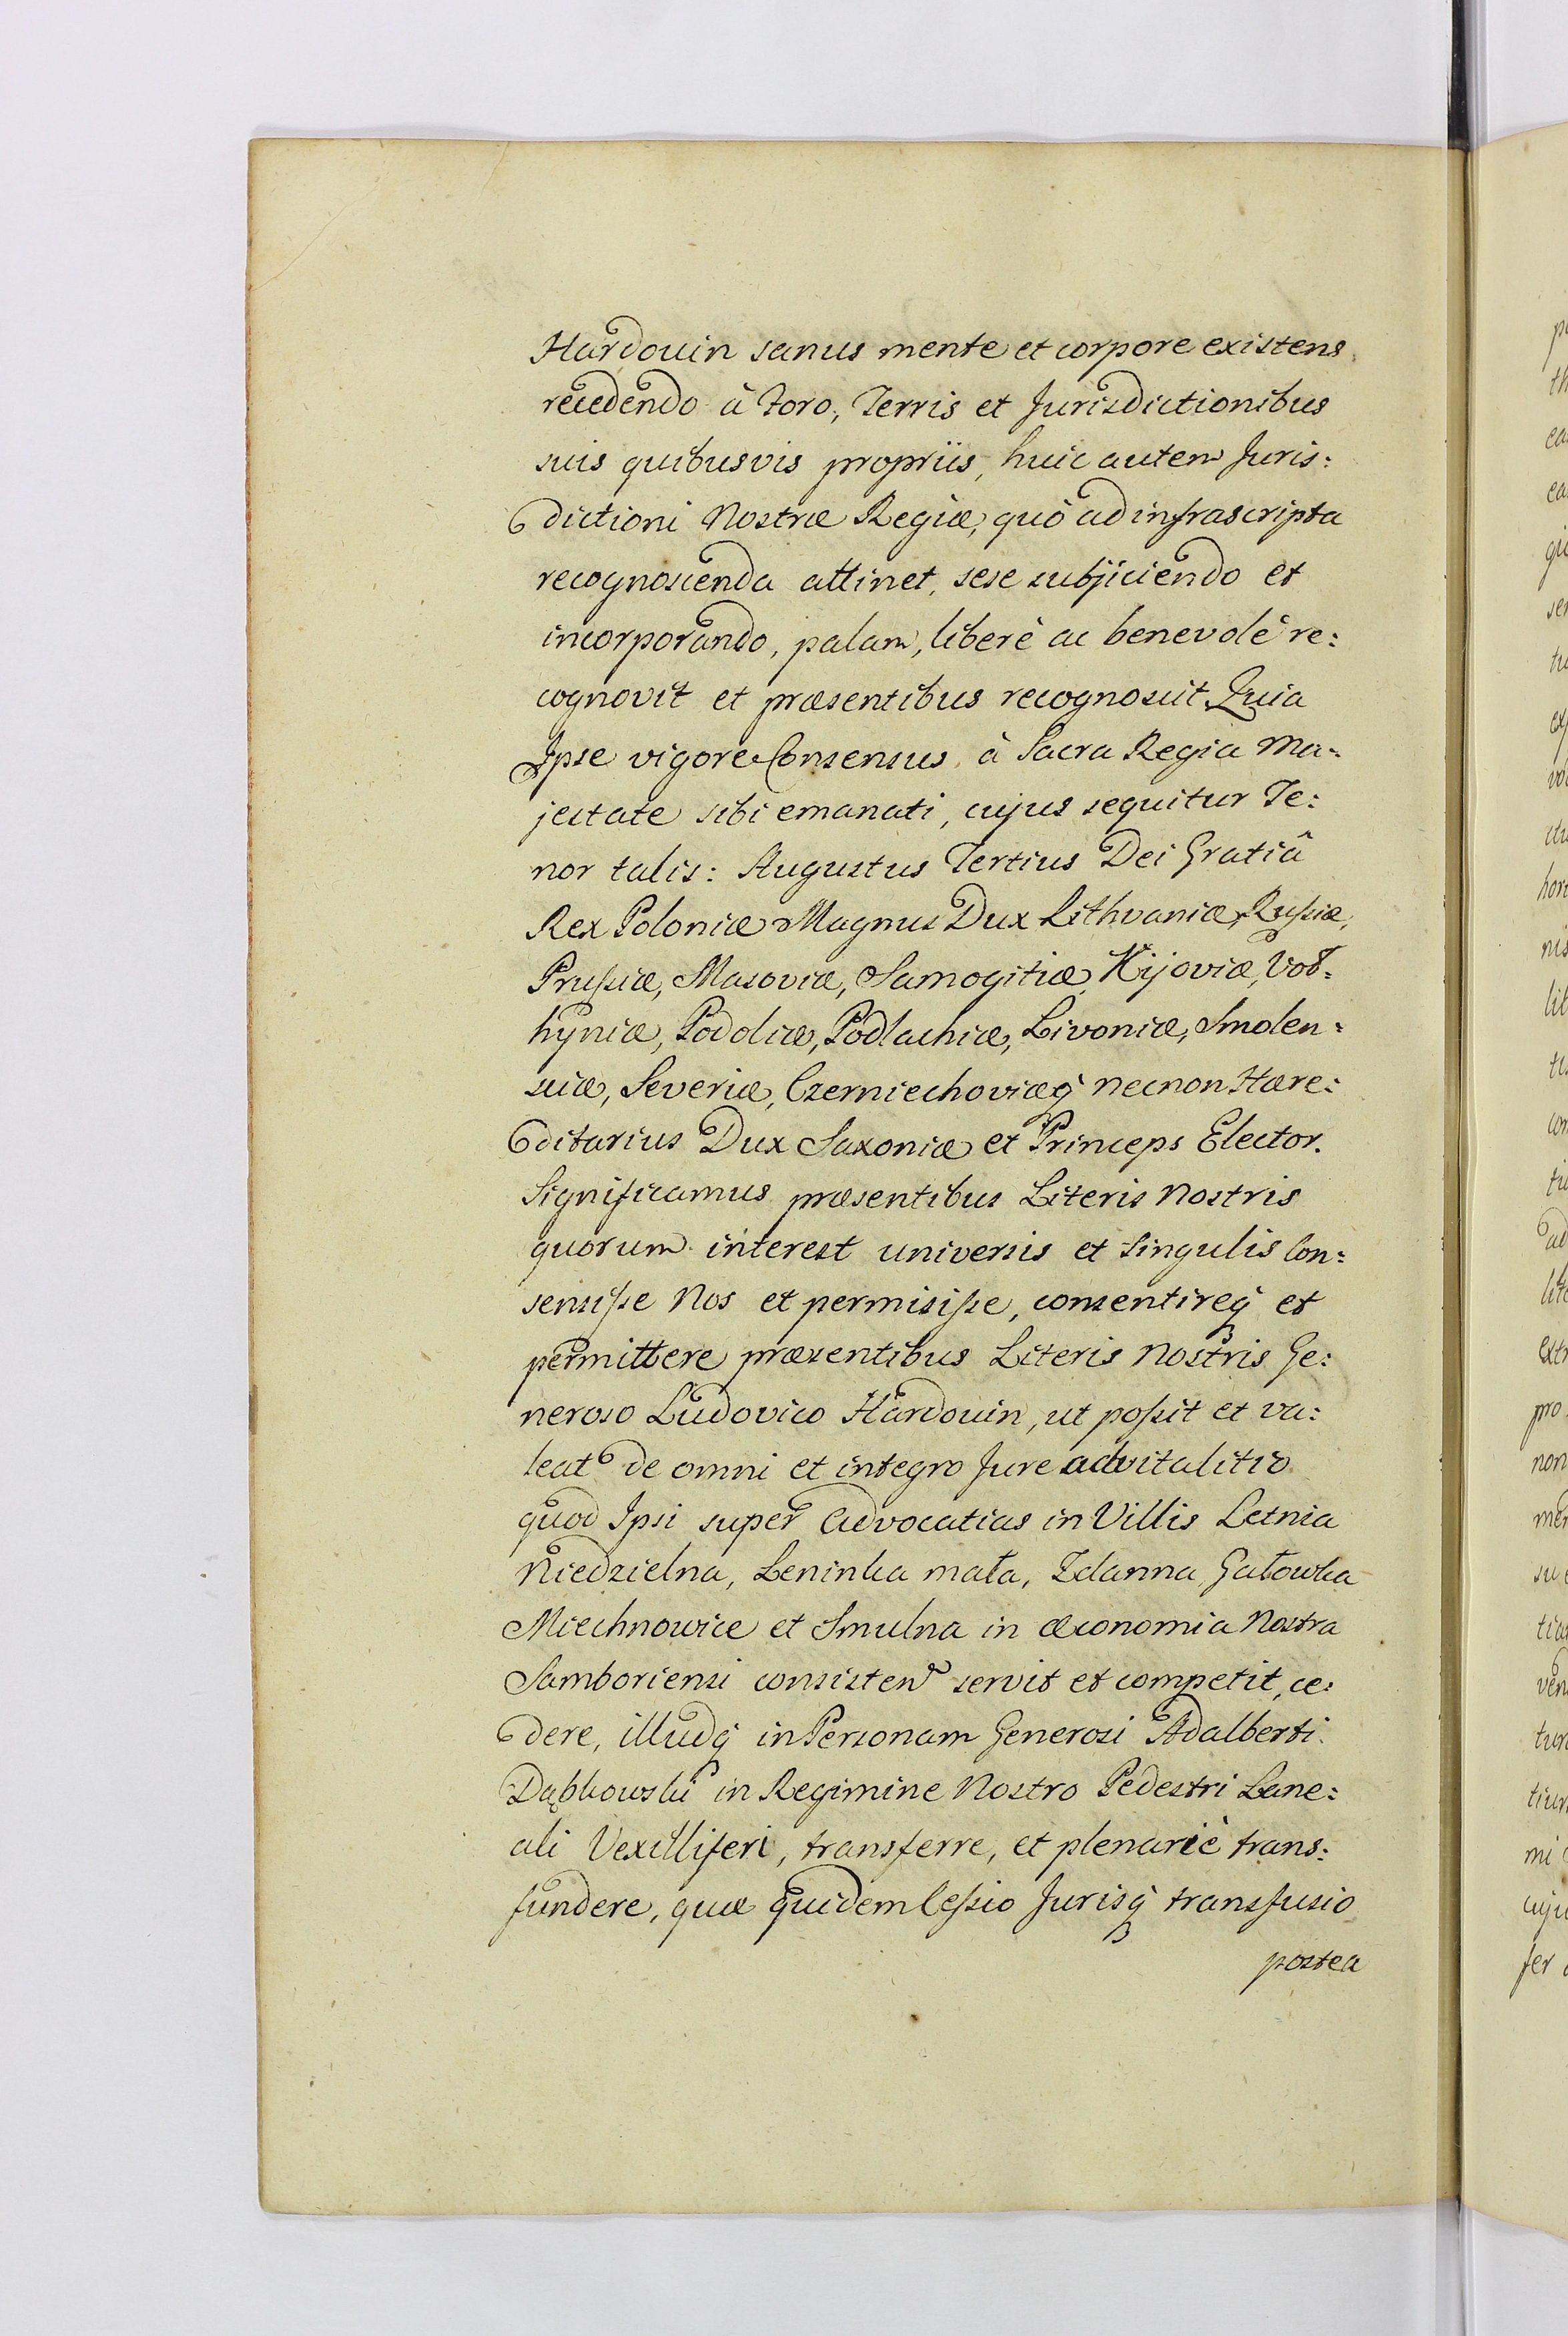 Hardouin sanus mente et corpore existens
recedendo à Foro, Terris et Jurisdictionibus
suis quibusvis propriis, huic autem Juris:
dictioni Nostræ Regiæ, quò ad infrascripta
recognoscenda attinet, sese subjiciendo et
incorporando, palam, liberè ac benevolè re:
cognovit et præsentibus recognoscit Quia
Ipse vigore Consensus à Sacra Regia Ma:
jestate sibi emanati, cujus sequitur Te:
nor talis: Augustus Tertius Dei Gratiâ
Rex Poloniæ Magnus Dux Lithvaniæ, Rußiæ,
Prußiæ, Masoviæ, Samogitiæ, Kijoviæ, Vol:
hyniæ, Podoliæ, Podlachiæ, Livoniæ, Smolen:
sciæ, Severiæ, Czerniechoviæq́ necnon Hære:
ditarius Dux Saxoniæ et Princeps Elector.
Significamus præsentibus Literis Nostris
quorum interest universis et singulis Con:
sensiße Nos et permisiße, consentireq́ et
permittere præsentibus Literis Nostris Ge:
neroso Ludovico Hardouin, ut poßit et va:
leat de omni et integro Jure advitalitio
quod Ipsi super Advocatias in Villis Letnia
Niedzielna, Leninka mała, Zdanna, Gałowka
Miechnowice et Smulna in œconomia Nostra
Samboriensi consisten servit et competit, ce:
dere, illudq́ in Personam Generosi Adalberti
Dąbkowski in Regimine Nostro Pedestri Lane:
ali Vexilliferi, transferre, et plenariè trans:
fundere, quæ quidem Ceßio Jurisq́ transfusio
postea